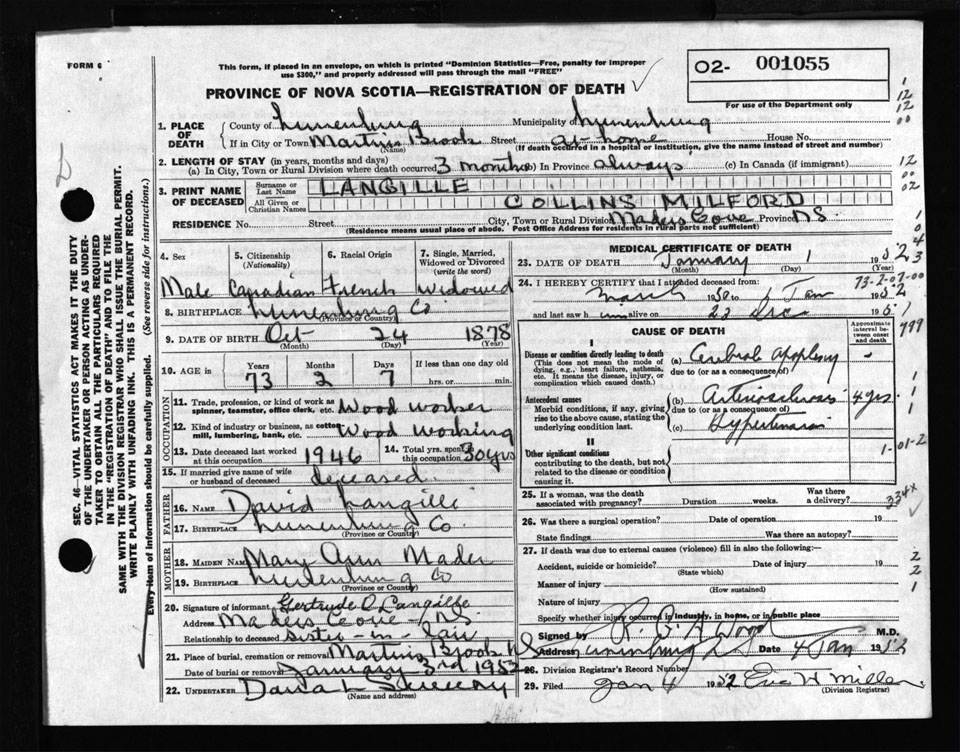 FORM 6
This form, if placed in an envelope, on which is printed "Dominion Statistics—Free, penalty for improper
use $300," and properly addressed will pass through the mail "FREE"
02- 001055
PROVINCE OF NOVA SCOTIA—REGISTRATION OF DEATH
For use of the Department only
1. PLACE OF DEATH
County of Lunenburg Municipality of Lunenburg
If in City or Town Martins Brook Street at home House No.
(Name) (If death occurred in a hospital or institution, give the name instead of street and number)
2. LENGTH OF STAY (in years, months and days)
(a) In City, Town or Rural Division where death occurred 3 months (b) In Province always (c) In Canada (if immigrant)
3. PRINT NAME OF DECEASED
Surname or Last Name LANGILLE
All Given or Christian Names COLLINS MILFORD
RESIDENCE No. Street City, Town or Rural Division Maders Cove Province NS
(Residence means usual place of abode. Post Office Address for residents in rural parts not sufficient)
4. Sex 5. Citizenship (Nationality) 6. Racial Origin 7. Single, Married, Widowed or Divorced (write the word)
Male Canadian French Widowed
8. BIRTHPLACE Lunenburg Co
(Province or Country)
9. DATE OF BIRTH Oct 24 1878
(Month) (Day) (Year)
10. AGE in Years Months Days If less than one day old
73 2 7 hrs. or min.
OCCUPATION
11. Trade, profession or kind of work as
spinner, teamster, office clerk, etc. Wood worker
12. Kind of industry or business, as cotton
mill, lumbering, bank, etc. Wood working
13. Date deceased last worked at this occupation 1946 14. Total yrs. spent in this occupation 30 yrs
15. If married give name of wife
or husband of deceased deceased
FATHER
16. NAME David Langille
17. BIRTHPLACE Lunenburg Co
(Province or Country)
MOTHER
18. MAIDEN NAME Mary Ann Mader
19. BIRTHPLACE Lunenburg Co
(Province or Country)
20. Signature of informant Gertrude C Langille
Address Maders Cove NS
Relationship to deceased sister-in-law
21. Place of burial, cremation or removal Martins Brook NS
Date of burial or removal January 3rd 1952
22. UNDERTAKER
(Name and address)
MEDICAL CERTIFICATE OF DEATH
23. DATE OF DEATH January 1 1952
(Month) (Day) (Year)
24. I HEREBY CERTIFY that I attended deceased from:
March 1950 to 1 Jan 1952
and last saw him alive on 23 Dec 1951
73-2-07-00
CAUSE OF DEATH
Approximate interval between onset and death
I
Disease or condition directly leading to death
(This does not mean the mode of dying, e.g., heart failure, asthenia, etc. It means the disease, injury, or complication which caused death.)
(a) Cerebral Apoplexy
due to (or as a consequence of)
Antecedent causes
Morbid conditions, if any, giving rise to the above cause, stating the underlying condition last.
(b) Arteriosclerosis 4 yrs.
due to (or as a consequence of)
(c) Hypertension
II
Other significant conditions
contributing to the death, but not related to the disease or condition causing it.
1-01-2
25. If a woman, was the death associated with pregnancy? Duration weeks. Was there a delivery?
334X
26. Was there a surgical operation? Date of operation 19
State findings Was there an autopsy?
27. If death was due to external causes (violence) fill in also the following:—
Accident, suicide or homicide? Date of injury 19
(State which)
Manner of injury
(How sustained)
Nature of injury
Specify whether injury occurred in industry, in home, or in public place
Signed by M.D.
Address Lunenburg Date 4 Jan 1952
28. Division Registrar's Record Number
29. Filed Jan 4 1952 Eva H Miller
(Division Registrar)
SEC. 46—VITAL STATISTICS ACT MAKES IT THE DUTY
OF THE UNDERTAKER OR PERSON ACTING AS UNDER-
TAKER TO OBTAIN ALL THE PARTICULARS REQUIRED
IN THE "REGISTRATION OF DEATH" AND TO FILE THE
SAME WITH THE DIVISION REGISTRAR WHO SHALL ISSUE THE BURIAL PERMIT.
WRITE PLAINLY WITH UNFADING INK. THIS IS A PERMANENT RECORD.
Every item of information should be carefully supplied. (See reverse side for instructions.)